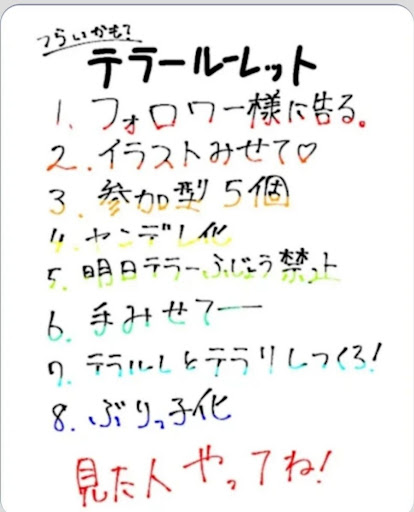 つらいかも?
テラールーレット
1. フォロワー様に告る。
2. イラストみせて♡
3. 参加型 5個
4. ヤンデレ化
5. 明日テラーふじょう禁止
6. 手みせてー
7. テラルしとテラリしつくろ!
8. ぶりっ子化
見た人やってね!